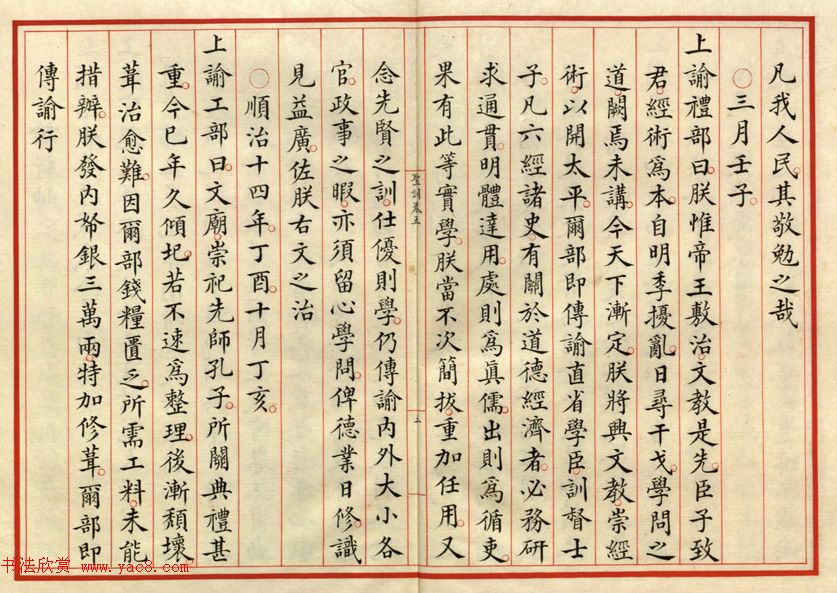 凡我人民其敬勉之哉
○三月壬子
上諭禮部曰朕惟帝王敷治文教是先臣子致
君經術為本自明季擾亂日尋干戈學問之
道闕焉未講今天下漸定朕將興文教崇經
術以開太平爾部即傳諭直省學臣訓督士
子凡六經諸史有關於道德經濟者必務研
求通貫明體達用處則為真儒出則為循吏
果有此等實學朕當不次簡拔重加任用又
聖訓卷五
三
念先賢之訓仕優則學仍傳諭內外大小各
官政事之暇亦須留心學問俾德業日修識
見益廣佐朕右文之治
○順治十四年丁酉十月丁亥
上諭工部曰文廟崇祀先師孔子所關典禮甚
重今已年久傾圮若不速為整理後漸頹壞
葺治愈難因爾部錢糧匱乏所需工料未能
措辦朕發內帑銀三萬兩特加修葺爾部即
傳諭行
书法欣赏 www.yac8.com